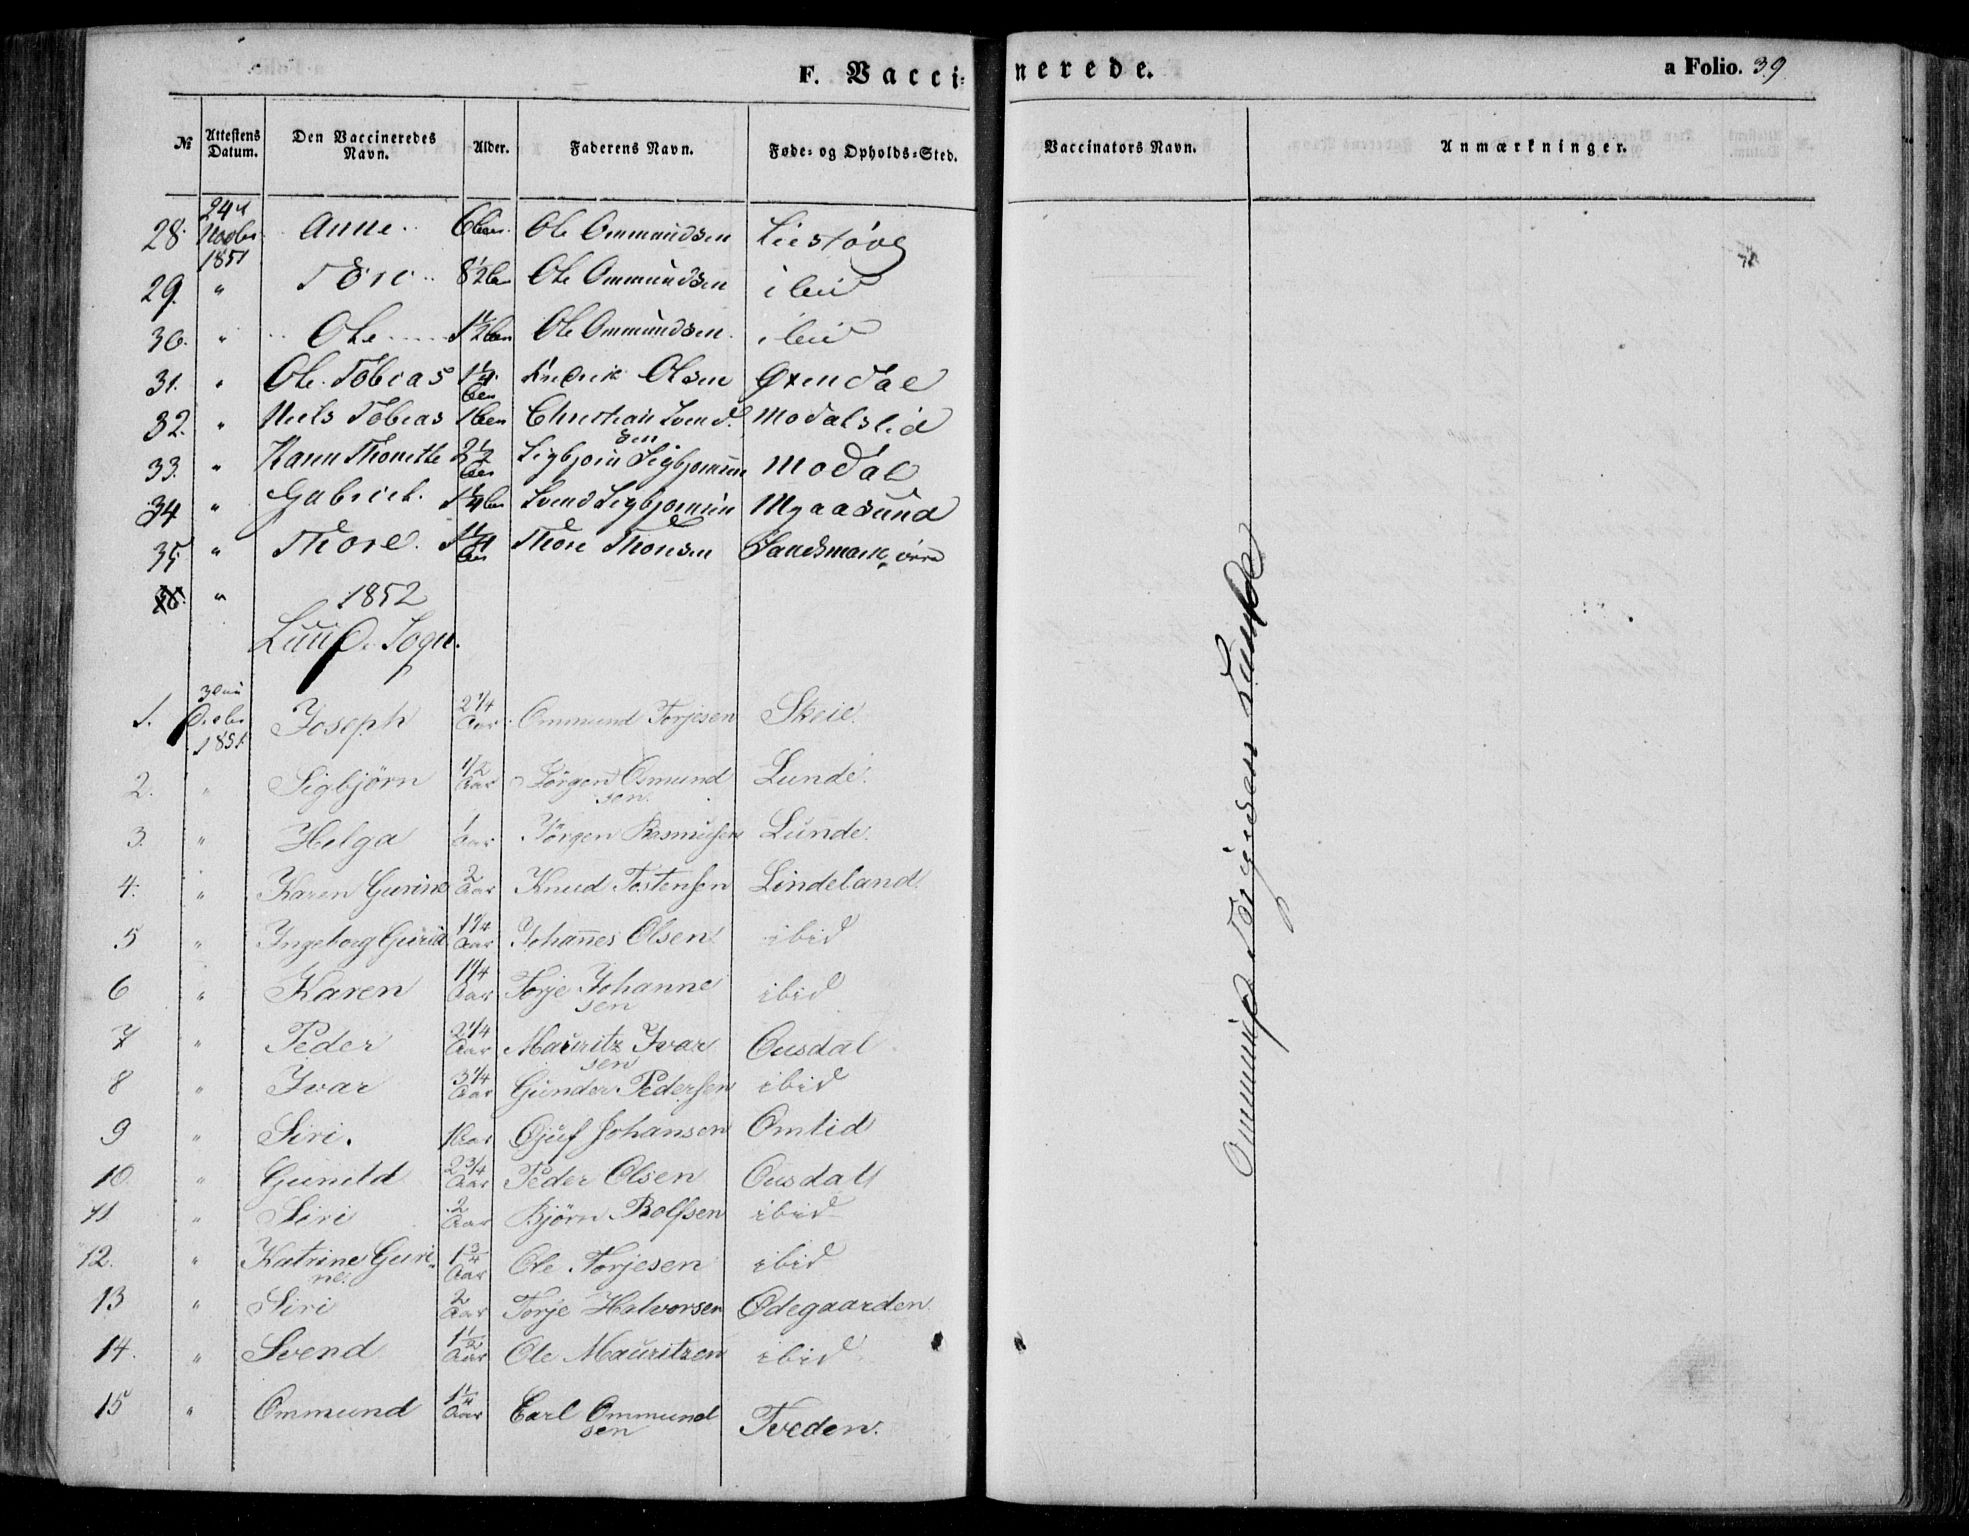 F. Vaccinerede. a Folio. 39
№ Attestens Datum. Den Vaccineredes Navn. Alder. Faderens Navn. Føde- og Opholds-Sted. Vaccinators Navn. Anmærkninger.
28. 24d Novbr 1851 Anne 6 Ole Ommundsen
29. " Tore 8½ Ole Ommundsen ibid
30. " Ole 1½ Ole Ommundsen ibid
31. " Ole Tobias 1¼ Fredrik Olsen Øxendal
32. " Niels Tobias 1 Christian Svendsen Modalslid
33. " Karen Thonette 2½ Sigbjørn Sigbjørnsen Modal
34 " Gabriel 1¼ Svend Sigbjørnsen Myaasund
35. " Thore 1¼ Thore Thoresen Sandsmark øvre
36. " 1852
Lunde Sogn.
1. 30 Decbr 1851 Joseph 2¼ Aar Ommund Torjesen Skeie.
2. " Sigbjörn ½ Aar Jörgen Osmundsen Lunde.
3. " Helga 1 Aar Jörgen Rasmussen Lunde.
4. " Karen Gurine 2 Aar Knud Tostensen Lindeland.
5 " Ingeborg Gurid 1¼ Aar Johannes Olsen ibid
6 " Karen 1¼ Aar Torje Johannesen ibid
7 " Peder 2¼ Aar Mauritz Ivarsen Ousdal
8 " Ivar 3¼ Aar Gunder Pedersen ibid
9 " Siri. 1 Aar Gjuf Johansen Omlid
10. " Gunild 2¾ Aar Peder Olsen Ousdal
11 " Siri 2 Aar Björn Rolfsen ibid
12. " Katrine Gurine. 1¾ Aar Ole Torjesen ibid
13 " Siri 2 Aar Torje Halvorsen Ødegaarden
14. " Svend 1½ Aar Ole Mauritzen ibid
15 " Ommund 1¼ Aar Carl Ommundsen Tveden.
Ommund Torjesen Lunde